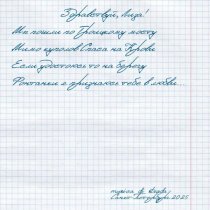 Здравствуй, Лиза!
Мы пошли по Троицкому мосту
Мимо куполов Спаса на Крови
Если удостоюсь то на берегу
Фонтанки я признаюсь тебе в любви.
Санкт-Петербург 2025